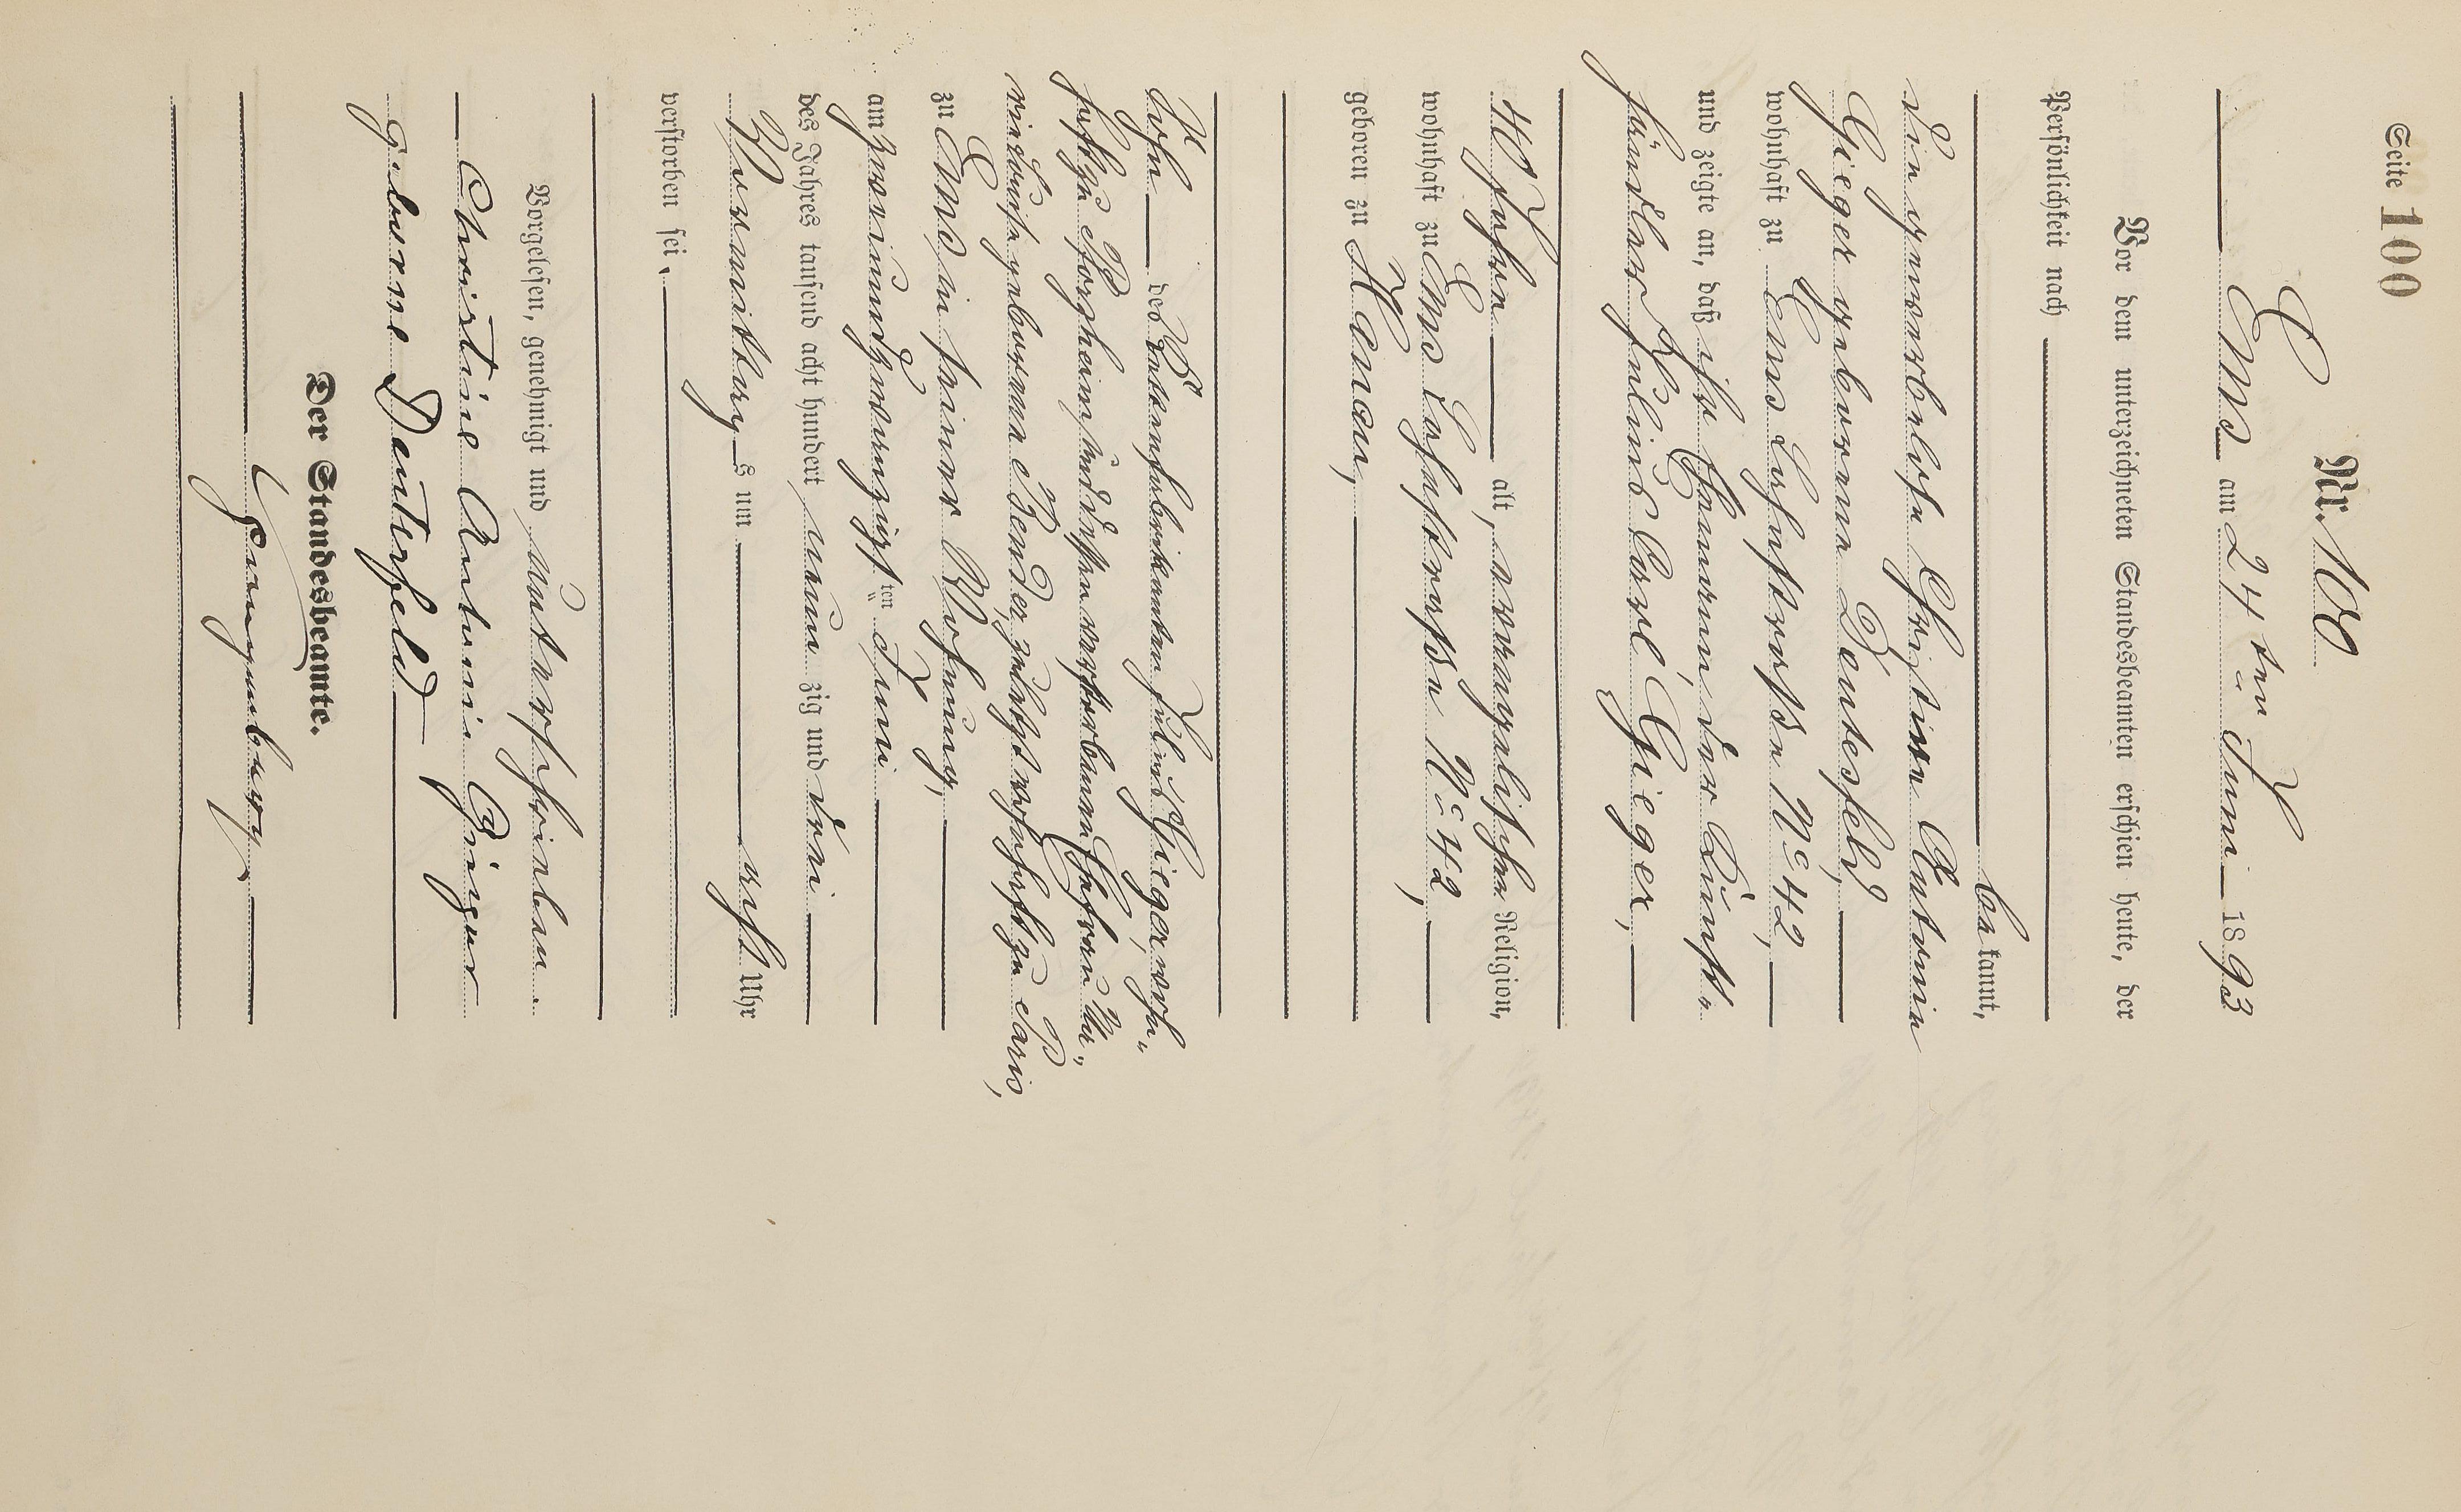 Seite 100
Nr. 100
Ems am 24ten Juni 1893
Vor dem unterzeichneten Standesbeamten erschien heute, der
Persönlichkeit nach
bekannt,
die gewerblose Christine Antonie
Gieger geborene Deuterfeld,
wohnhaft zu Ems Lahnstraße No 42,
und zeigte an, daß ihr Ehemann, der Kunst-
händler Julius Carl Gieger,
40 Jahre alt, evangelischer Religion,
wohnhaft zu Ems Lahnstraße No 42,
geboren zu Hanau,
Sohn des Julius Gieger, wohn-
haft zu Pforzheim, und dessen verstorbenen Ehefrau
geborene Bender, zuletzt wohnhaft zu Paris,
zu Ems in seiner Wohnung,
am zweiundzwanzigsten Juni
des Jahres tausend acht hundert neunzig und drei
Vormittags um acht Uhr
verstorben sei.
Vorgelesen, genehmigt und unterschrieben
Christine Antonie Gieger
geborene Deuterfeld
Der Standesbeamte.